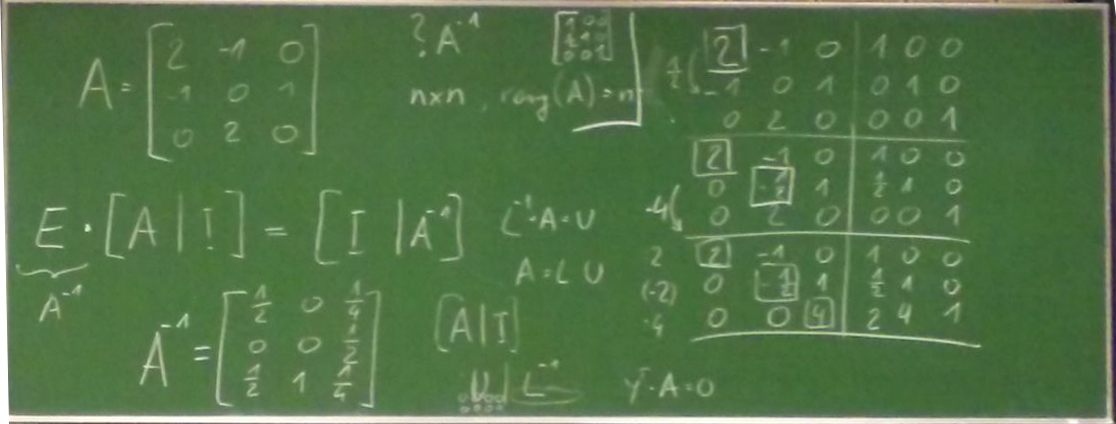 A = [ 2 -1 0
-1 0 1
0 2 0 ]
? A⁻¹
n×n , rang(A) = n
E · [ A | I ] = [ I | A⁻¹ ]
A⁻¹
L⁻¹·A=U
A=LU
A⁻¹ = [ 1/2 0 1/4
0 0 1/2
1/2 1 1/4 ]
[A|I]
U | L⁻¹
yᵀ·A=0
1/2
2 -1 0 | 1 0 0
-1 0 1 | 0 1 0
0 2 0 | 0 0 1
2 -1 0 | 1 0 0
0 -1/2 1 | 1/2 1 0
-4 0 2 0 | 0 0 1
2 2 -1 0 | 1 0 0
(-2) 0 -1/2 1 | 1/2 1 0
4 0 0 4 | 2 4 1